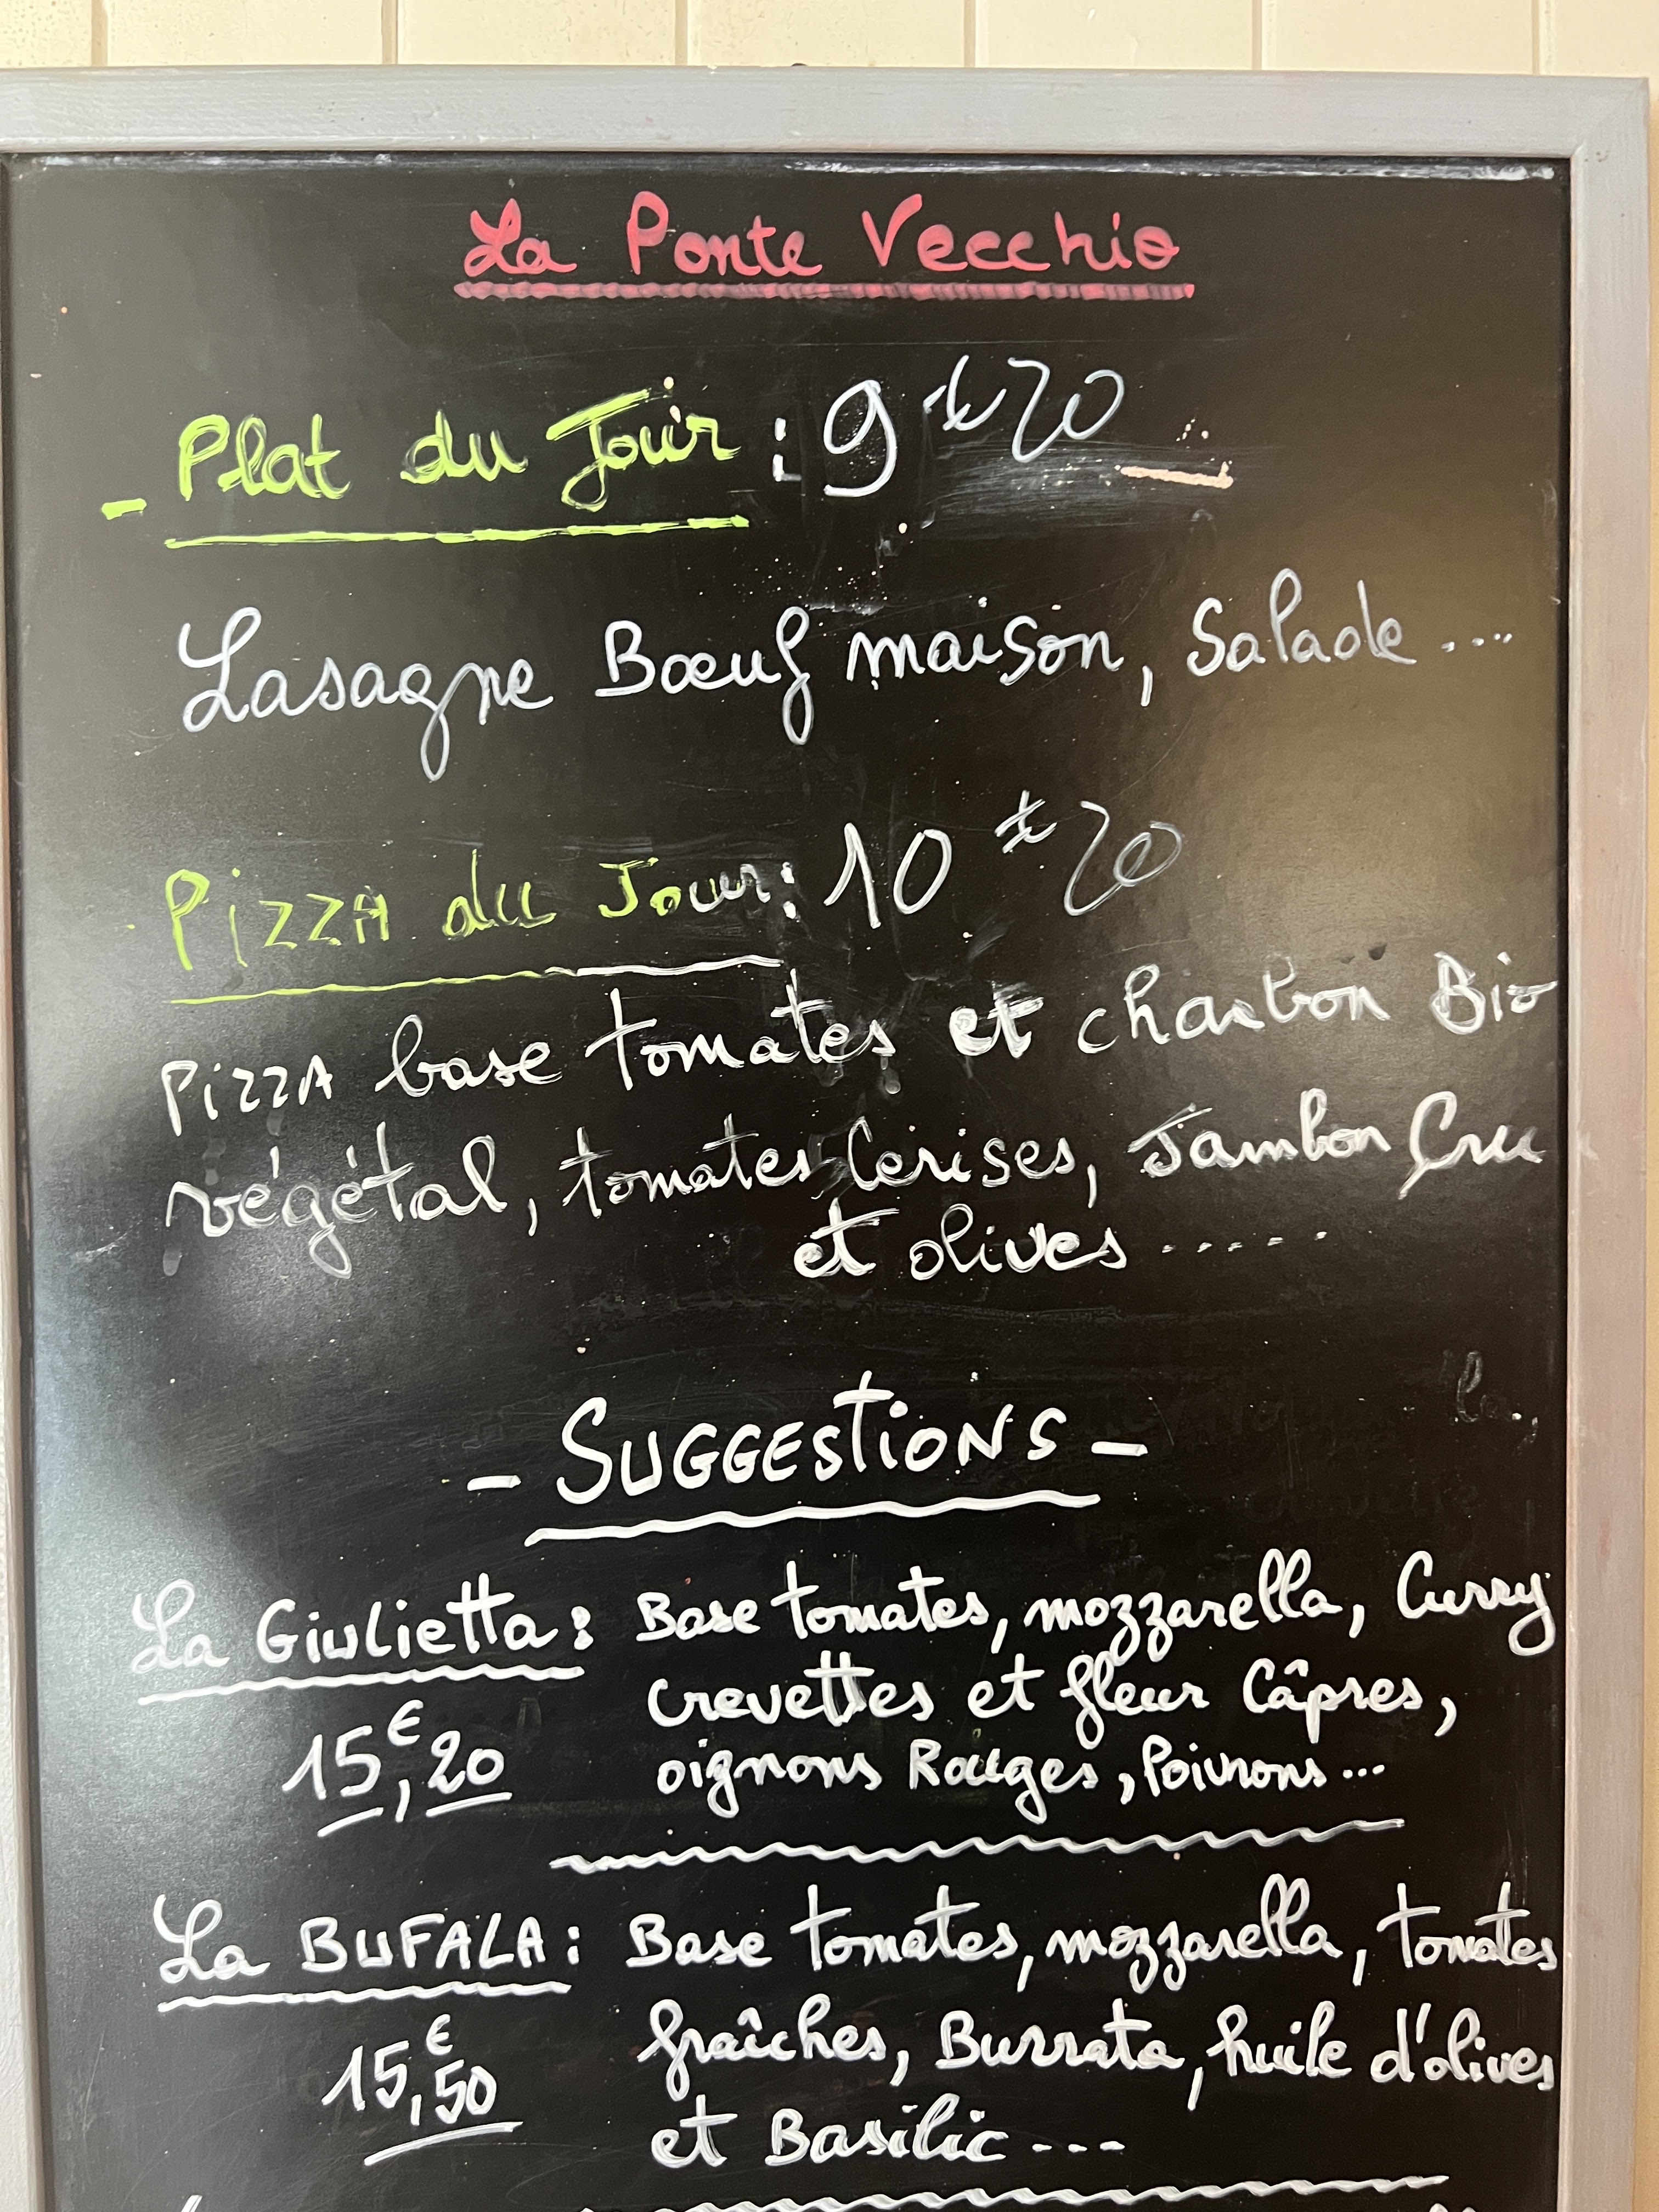 La Ponte Vecchio
- Plat du Jour : 9 € 20
Lasagne Bœuf maison, Salade ....
Pizza du Jour : 10 € 20
Pizza base tomates et charbon Bio
végétal, tomates Cerises, Jambon Cru
et olives ......
- SUGGESTIONS -
La Giulietta : Base tomates, mozzarella, Curry
crevettes et fleur Câpres,
15€,20 oignons Rouges, Poivrons ...
La BUFALA : Base tomates, mozzarella, tomates
fraîches, Burrata, huile d'olives
15,€50
et Basilic ---